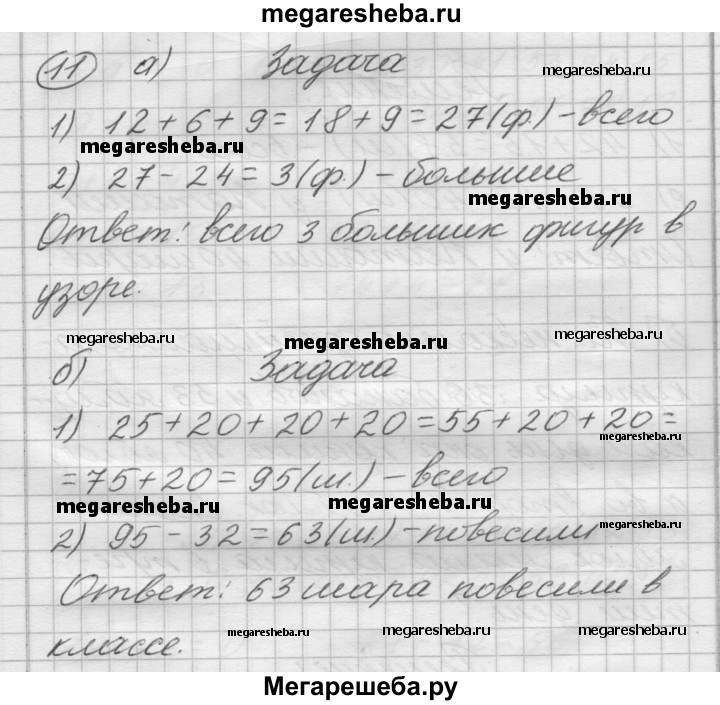 megaresheba.ru
11 а) Задача
megaresheba.ru
1) 12 + 6 + 9 = 18 + 9 = 27 (ф.) - всего
megaresheba.ru
2) 27 - 24 = 3 (ф.) - большие
megaresheba.ru
Ответ: всего 3 больших фигур в
узоре.
megaresheba.ru megaresheba.ru megaresheba.ru
б) Задача
1) 25 + 20 + 20 + 20 = 55 + 20 + 20 =
megaresheba.ru
= 75 + 20 = 95 (ш.) - всего
megaresheba.ru megaresheba.ru
2) 95 - 32 = 63 (ш.) - повесили
megaresheba.ru
Ответ: 63 шара повесили в
классе.
megaresheba.ru megaresheba.ru megaresheba.ru
Мегарешеба.ру